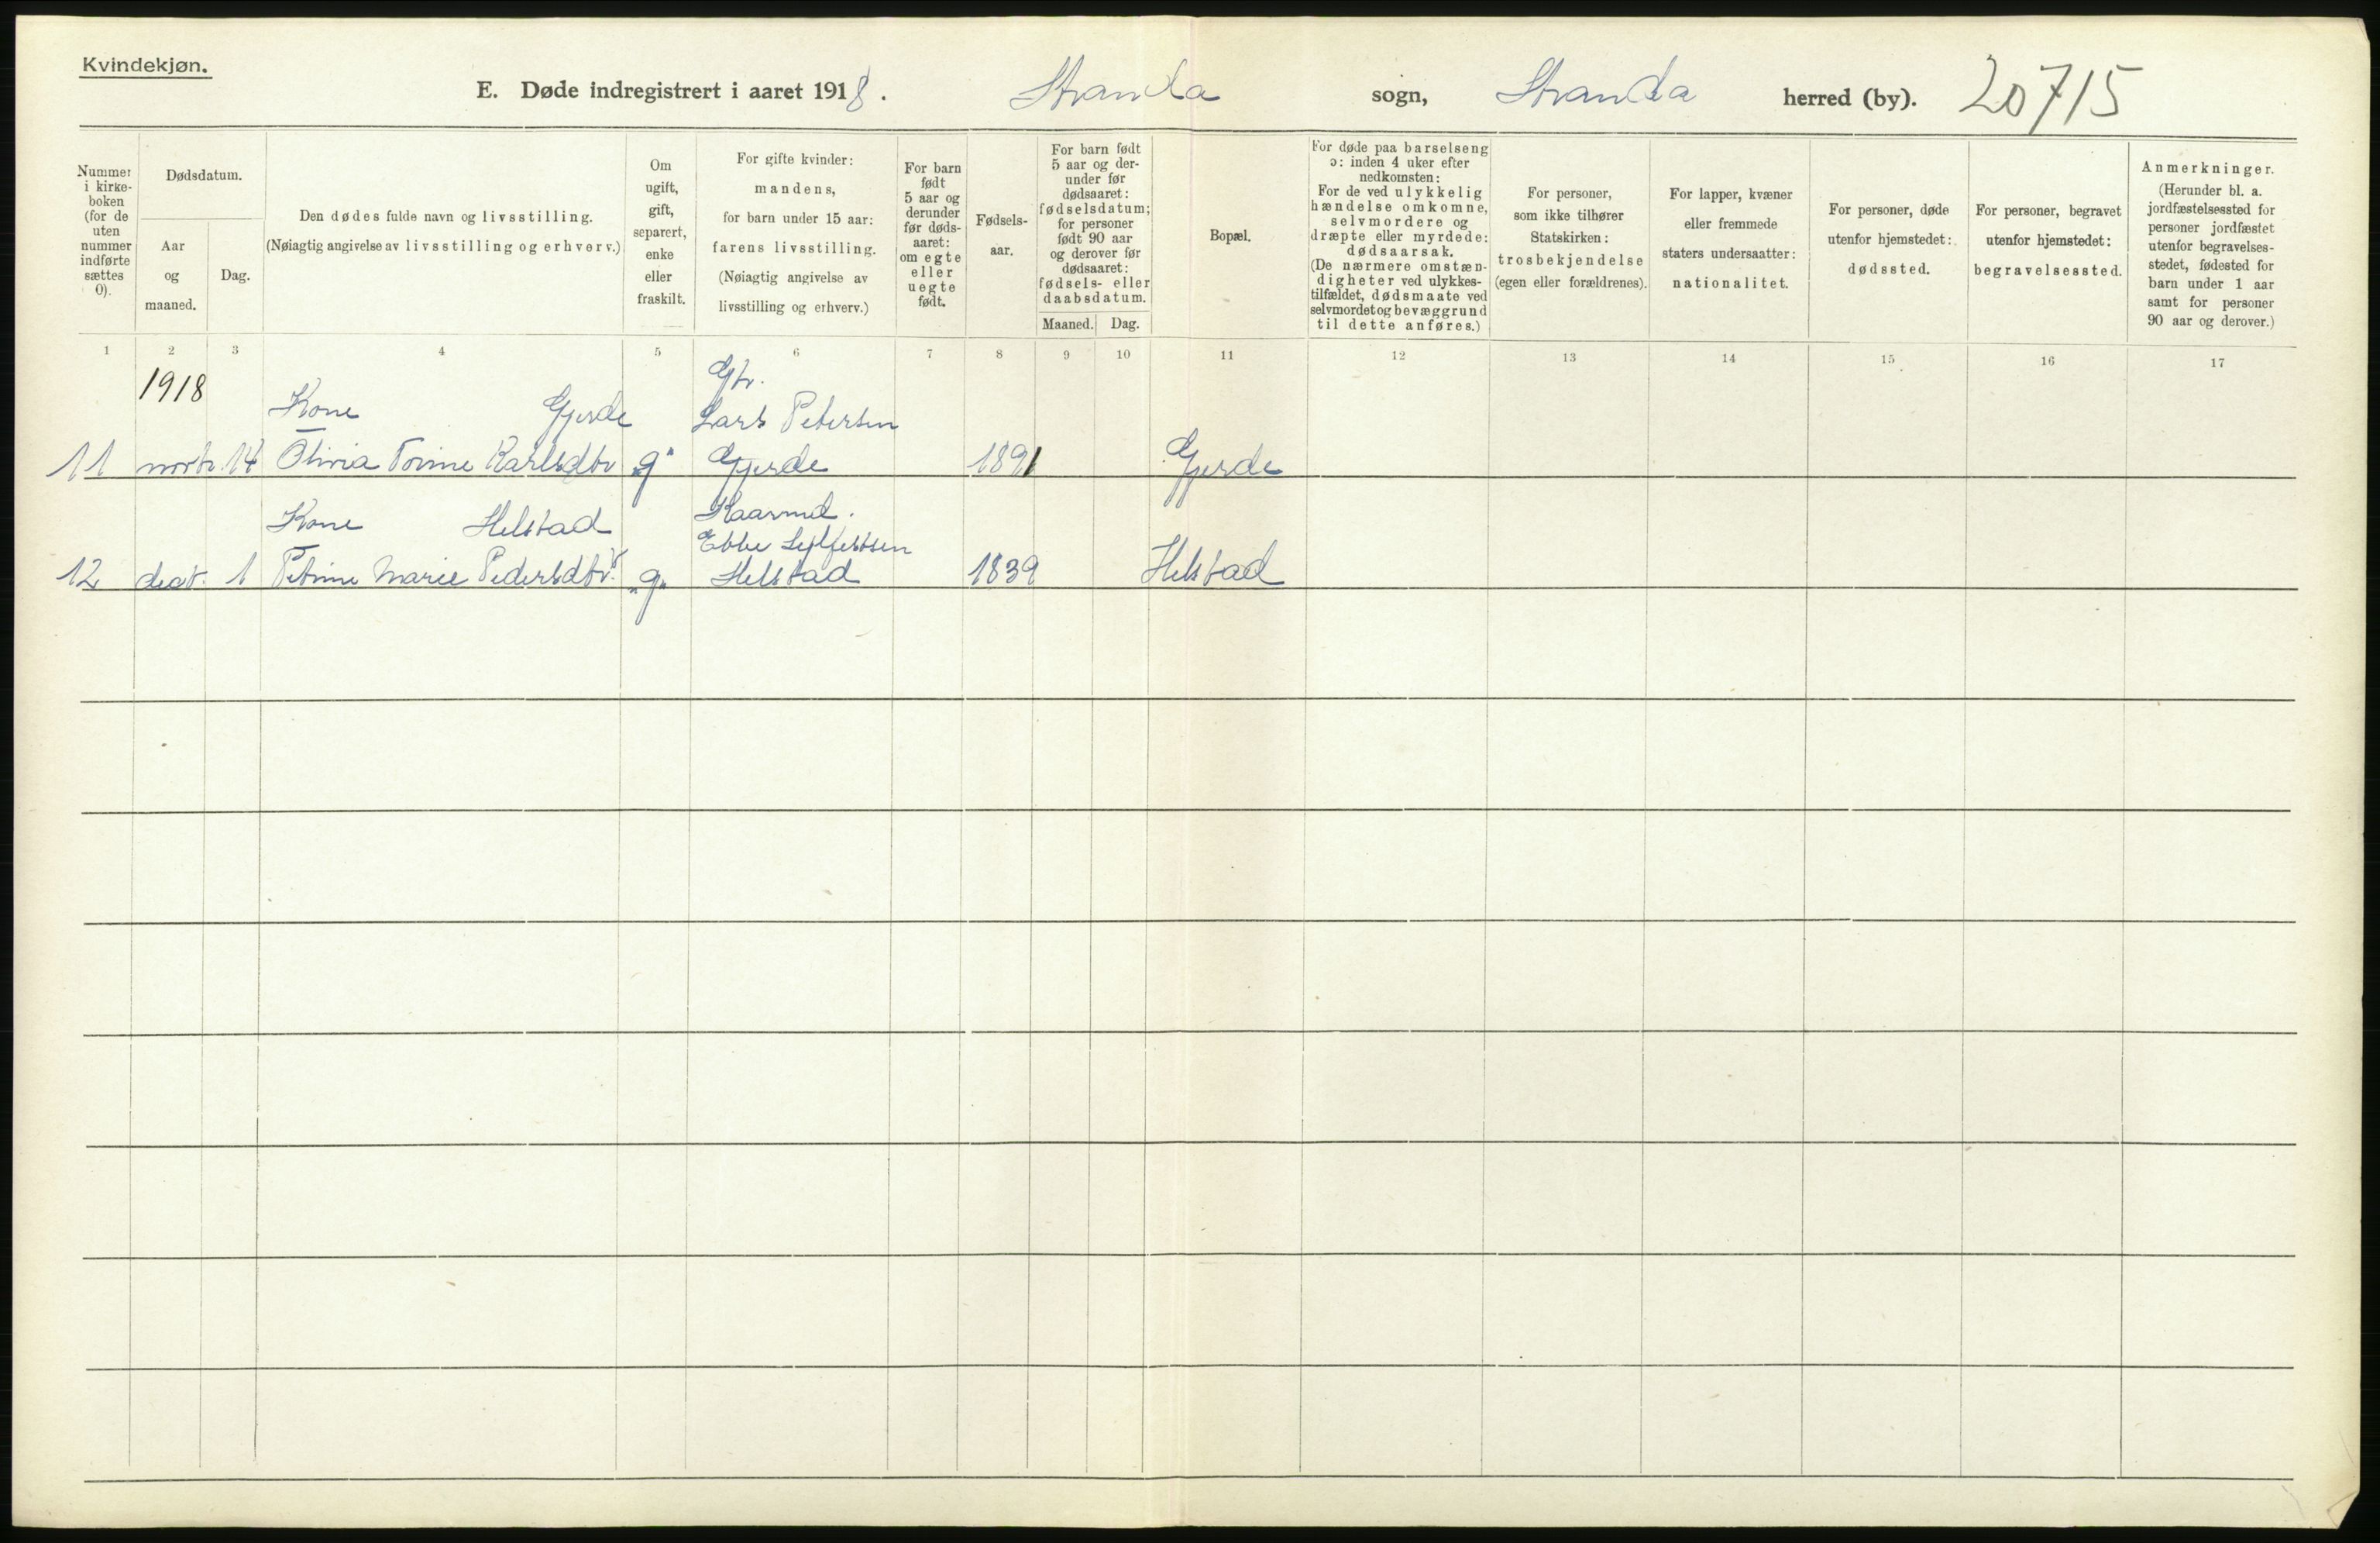 Kvindekjøn.
E. Døde indregistrert i aaret 1918. Stranda sogn, Stranda herred (by). 20715
Nummer
i kirke-
boken
(for de
uten
nummer
indførte
sættes
0).
Dødsdatum.
Aar
og
maaned.
Dag.
Den dødes fulde navn og livsstilling.
(Nøiagtig angivelse av livsstilling og erhverv.)
Om
ugift,
gift,
separert,
enke
eller
fraskilt.
For gifte kvinder:
mandens,
for barn under 15 aar:
farens livsstilling.
(Nøiagtig angivelse av
livsstilling og erhverv.)
For barn
født
5 aar og
derunder
før døds-
aaret:
om egte
eller
uegte
født.
Fødsels-
aar.
For barn født
5 aar og der-
under før
dødsaaret:
fødselsdatum;
for personer
født 90 aar
og derover før
dødsaaret:
fødsels- eller
daabsdatum.
Maaned. Dag.
Bopæl.
For døde paa barselseng
ɔ: inden 4 uker efter
nedkomsten:
For de ved ulykkelig
hændelse omkomne,
selvmordere og
dræpte eller myrdede:
dødsaarsak.
(De nærmere omstæn-
digheter ved ulykkes-
tilfældet, dødsmaate ved
selvmordet og bevæggrund
til dette anføres.)
For personer,
som ikke tilhører
Statskirken:
trosbekjendelse
(egen eller forældrenes).
For lapper, kvæner
eller fremmede
staters undersaatter:
nationalitet.
For personer, døde
utenfor hjemstedet:
dødssted.
For personer, begravet
utenfor hjemstedet:
begravelsessted.
Anmerkninger.
(Herunder bl. a.
jordfæstelsessted for
personer jordfæstet
utenfor begravelses-
stedet, fødested for
barn under 1 aar
samt for personer
90 aar og derover.)
1 2 3 4 5 6 7 8 9 10 11 12 13 14 15 16 17
1918 Gbr.
Kone Gjerde Lars Petersen
11 novbr. 14 Olivia Torine Karlsdtr „g“ Gjerde 1891 Gjerde
Kone Helstad Kaarmd.
Ebbe
12 decbr. 1 Petrine Marie Pedersdtr. „g“ Helstad 1839 Helstad